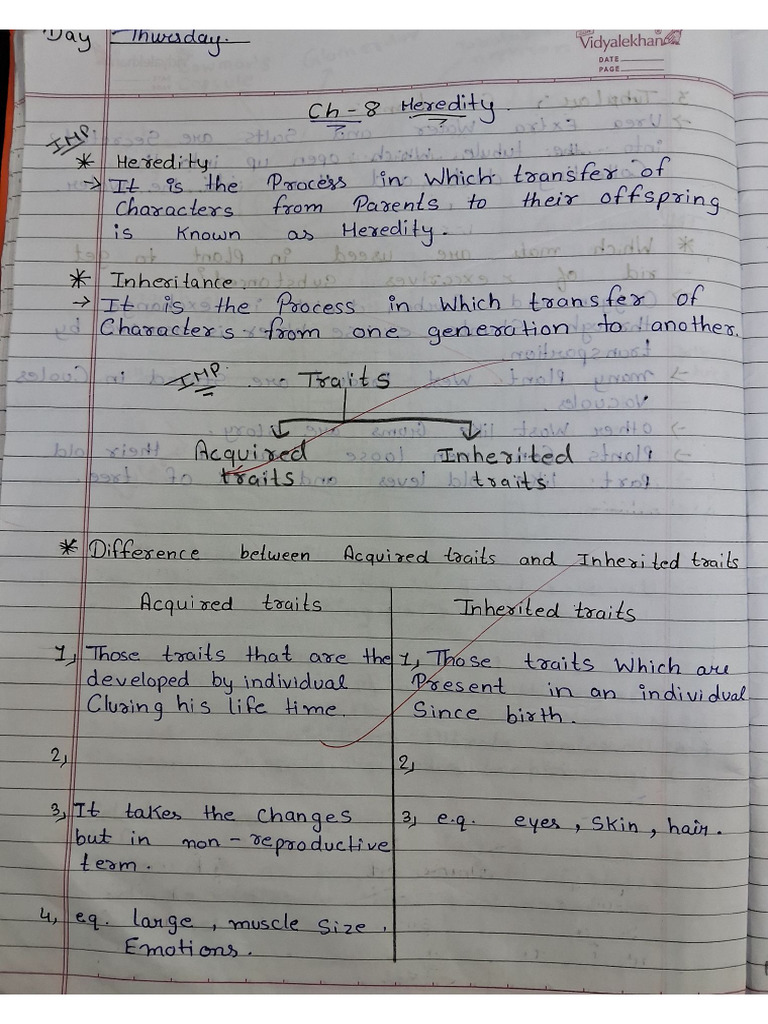 Day Thursday.
Vidyalekhan
DATE
PAGE
Ch - 8 Heredity.
IMP
* Heredity
→ It is the Process in Which transfer of
Characters from Parents to their offspring
is known as Heredity.
* Inheritance
→ It is the Process in Which transfer of
Characters from one generation to another.
IMP. Traits
Acquired Inherited
traits traits
* Difference between Acquired traits and Inherited traits
Acquired traits Inherited traits
1, Those traits that are the 1, Those traits Which are
developed by individual Present in an individual
Cluring his life time. Since birth.
2, 2,
3, It takes the changes 3, e.g. eyes, Skin, hair.
but in non-reproductive
term.
4, eg. large, muscle Size,
Emotions.